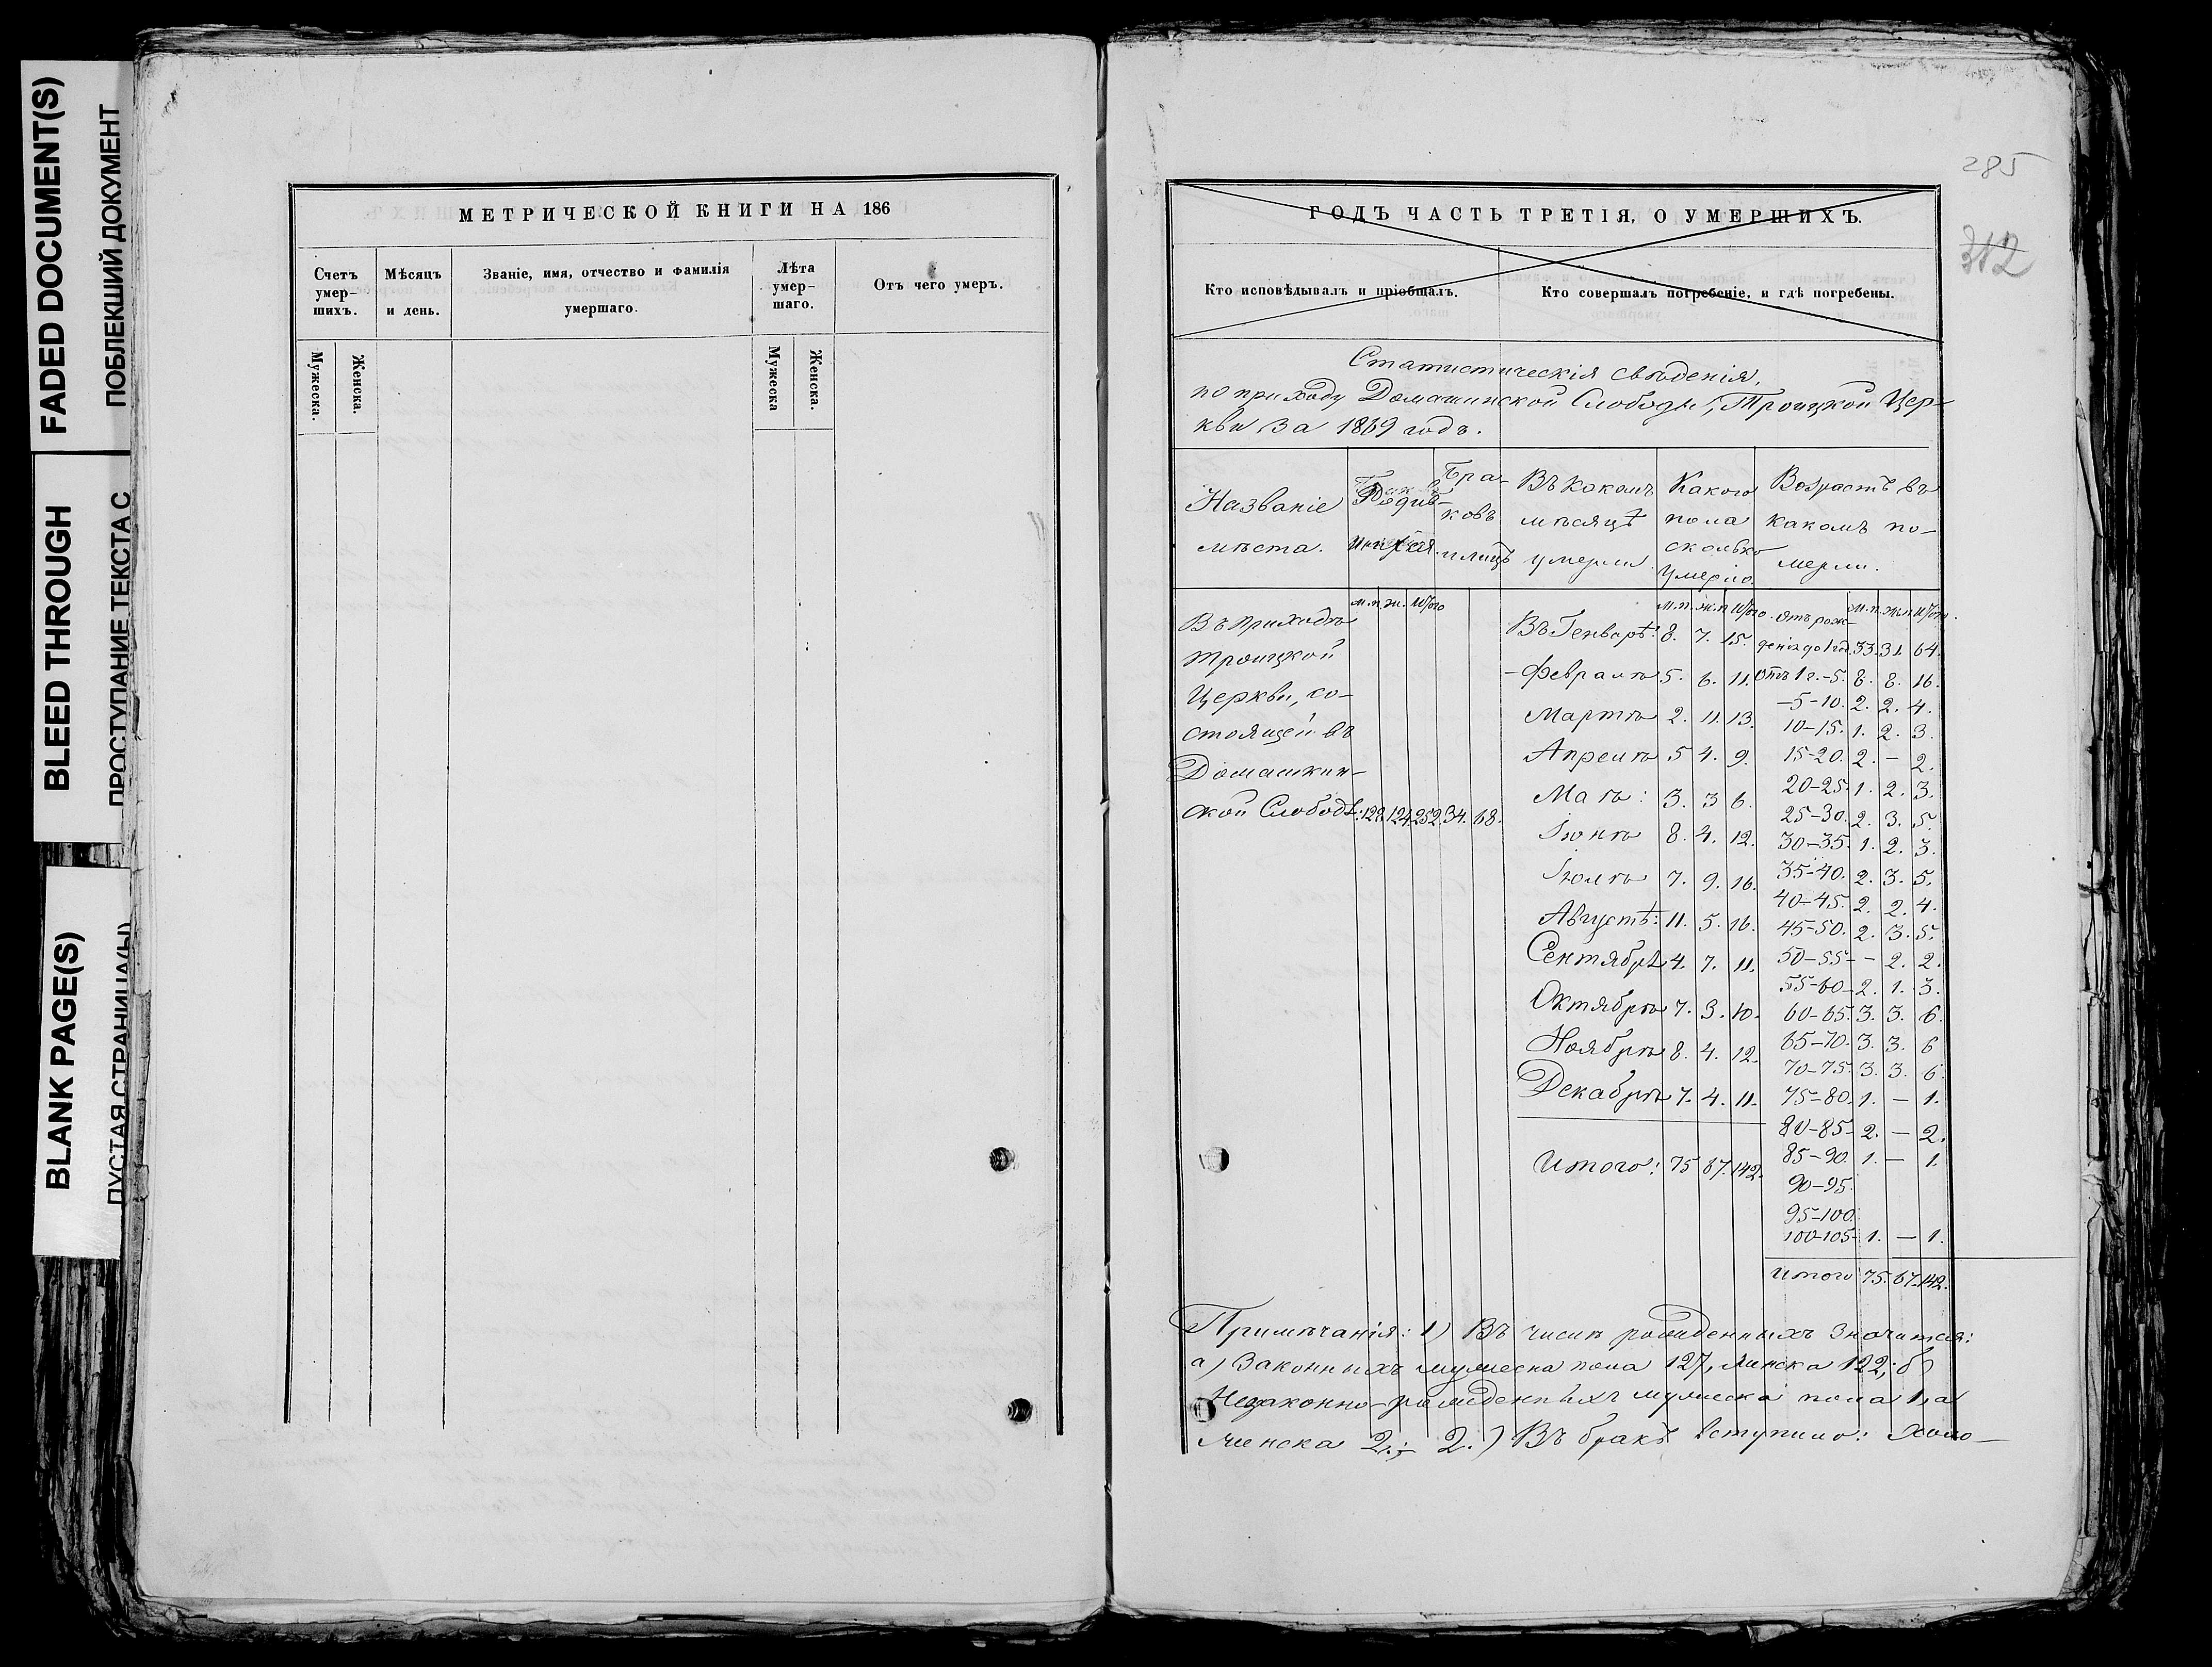 FADED DOCUMENT(S)
ПОБЛЕКШИЙ ДОКУМЕНТ
BLEED THROUGH
ПРОСТУПАНИЕ ТЕКСТА С
BLANK PAGE(S)
ПУСТАЯ СТРАНИЦА(Ы)
МЕТРИЧЕСКОЙ КНИГИ НА 186
Счетъ умер- шихъ.
Мѣсяцъ и день.
Званіе, имя, отчество и фамилія умершаго.
Лѣта умер- шаго.
Отъ чего умеръ.
Мужеска. Женска. Мужеска Женска.
285
312
ГОДЪ ЧАСТЬ ТРЕТІЯ, О УМЕРШИХЪ.
Кто исповѣдывалъ и пріобщалъ.
Кто совершалъ погребеніе, и гдѣ погребены.
Статистическія свѣденія,
по приходу Домашинской Слободы, Троицкой Цер-
кви за 1869 годъ.
Названіе мѣста.
Бра- ковъ и лицъ
Въ какомъ мѣсяцѣ умерли
Какого пола сколько умерло.
Возрастъ въ какомъ по- мерли.
м.п. ж. Итого
м.п. ж.п Итого
м.п. ж.п Итого.
Въ приходѣ
Троицкой
Церкви, со-
стоящей въ
Домашкин-
ской Слободѣ: 128. 124. 252. 34. 68.
Въ Генварѣ: 8. 7. 15.
- Февралѣ 5. 6. 11.
Мартѣ 2. 11. 13.
Апрелѣ 5 4. 9.
Маѣ: 3. 3 6.
Іюнѣ 8. 4. 12.
Іюлѣ 7. 9. 16.
Августѣ: 11. 5. 16.
Сентябрѣ 4. 7. 11.
Октябрѣ 7. 3. 10.
Ноябрѣ 8. 4. 12.
Декабрѣ 7. 4. 11.
Итого: 75 67. 142.
Отъ рож-
денія до 1 год. 33. 31. 64.
Отъ 1 г. - 5. 8. 8. 16.
- 5 - 10. 2. 2. 4.
10 - 15. 1. 2. 3.
15 - 20. 2. - 2.
20 - 25. 1. 2. 3.
25 - 30. 2. 3. 5.
30 - 35. 1. 2. 3.
35 - 40. 2. 3. 5.
40 - 45. 2. 2. 4.
45 - 50. 2. 3. 5.
50 - 55 - - 2. 2.
55 - 60 - 2. 1. 3.
60 - 65. 3. 3. 6.
65 - 70. 3. 3. 6
70 - 75. 3. 3. 6.
75 - 80. 1. - 1.
80 - 85 - 2. - 2.
85 - 90. 1. - 1.
90 - 95.
95 - 100.
100 - 105 - 1. - 1.
Итого 75. 67. 142.
Примѣчанія: 1) Въ числѣ рожденныхъ значится:
а) Законныхъ мужеска пола 127, женска 122; б)
Незаконно-рожденныхъ мужеска пола 1, а
женска 2.; - 2.) Въ бракъ вступило: Холо-